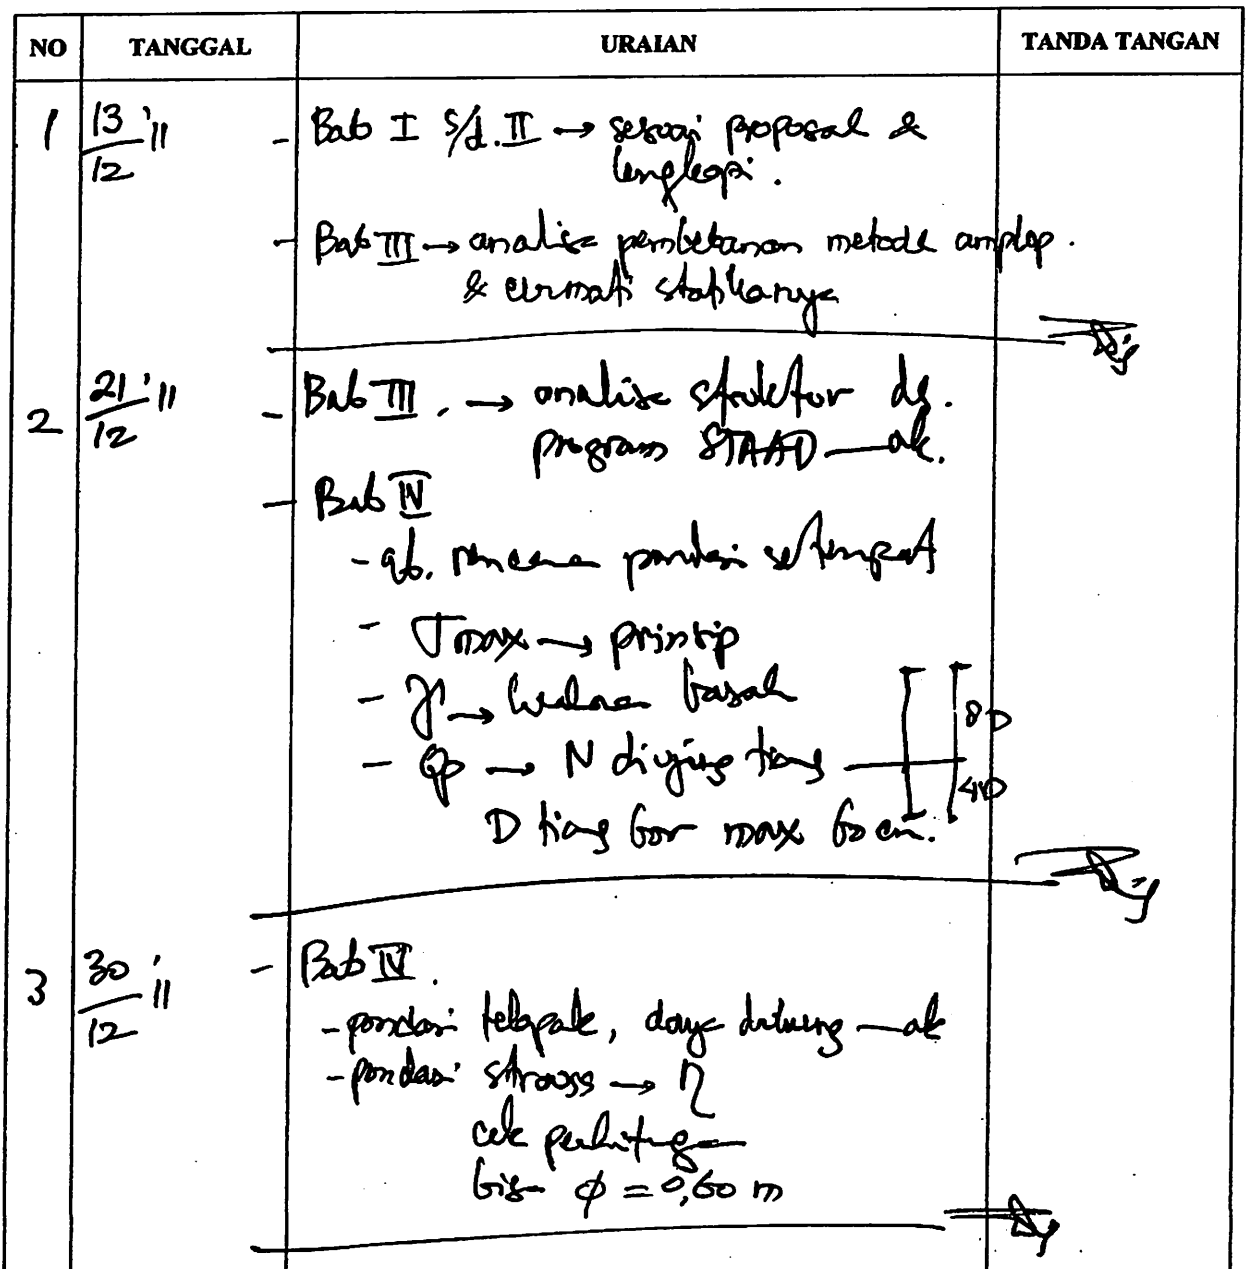 NO TANGGAL URAIAN TANDA TANGAN
1 13/12 '11 - Bab I s/d. II → sesuai proposal &
lengkapi.
- Bab III → analisa pembebanan metode amplop.
& cermati statikanya
2 21/12 '11 - Bab III. → analisa struktur dg.
program STAAD — ok.
- Bab IV
- gb. rencana pondasi setempat
- σmax → prinsip
- γ → keadaan basah
- Qp → N diujung tiang
8D
4D
D tiang bor max 60 cm.
3 30/12 '11 - Bab IV.
- pondasi telapak, daya dukung — ok
- pondasi strauss → η
cek perhitungan
φ = 0,60 m